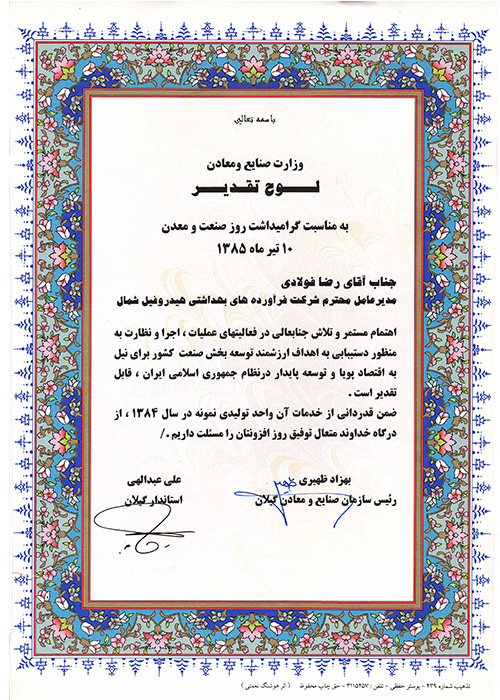 باسمه تعالی
وزارت صنایع ومعادن
لوح تقدیر
به مناسبت گرامیداشت روز صنعت و معدن
۱۰ تیر ماه ۱۳۸۵
جناب آقای رضا فولادی
مدیرعامل محترم شرکت فرآورده های بهداشتی هیدروفیل شمال
اهتمام مستمر و تلاش جنابعالی در فعالیتهای عملیات ، اجرا و نظارت به
منظور دستیبابی به اهداف ارزشمند توسعه بخش صنعت کشور برای نیل
به اقتصاد پویا و توسعه پایدار درنظام جمهوری اسلامی ایران ، قابل
تقدیر است .
ضمن قدردانی از خدمات آن واحد تولیدی نمونه در سال ۱۳۸۴ ، از
درگاه خداوند متعال توفیق روز افزونتان را مسئلت داریم . /
بهزاد ظهیری
رئیس سازمان صنایع و معادن گیلان
علی عبدالهی
استاندار گیلان
تذهیب شماره ۴۳۹ - پوستر حفظی - تلفن : ۳۱۱۵۴۵۷ - حق چاپ محفوظ ( اثر هوشنگ نعمتی )